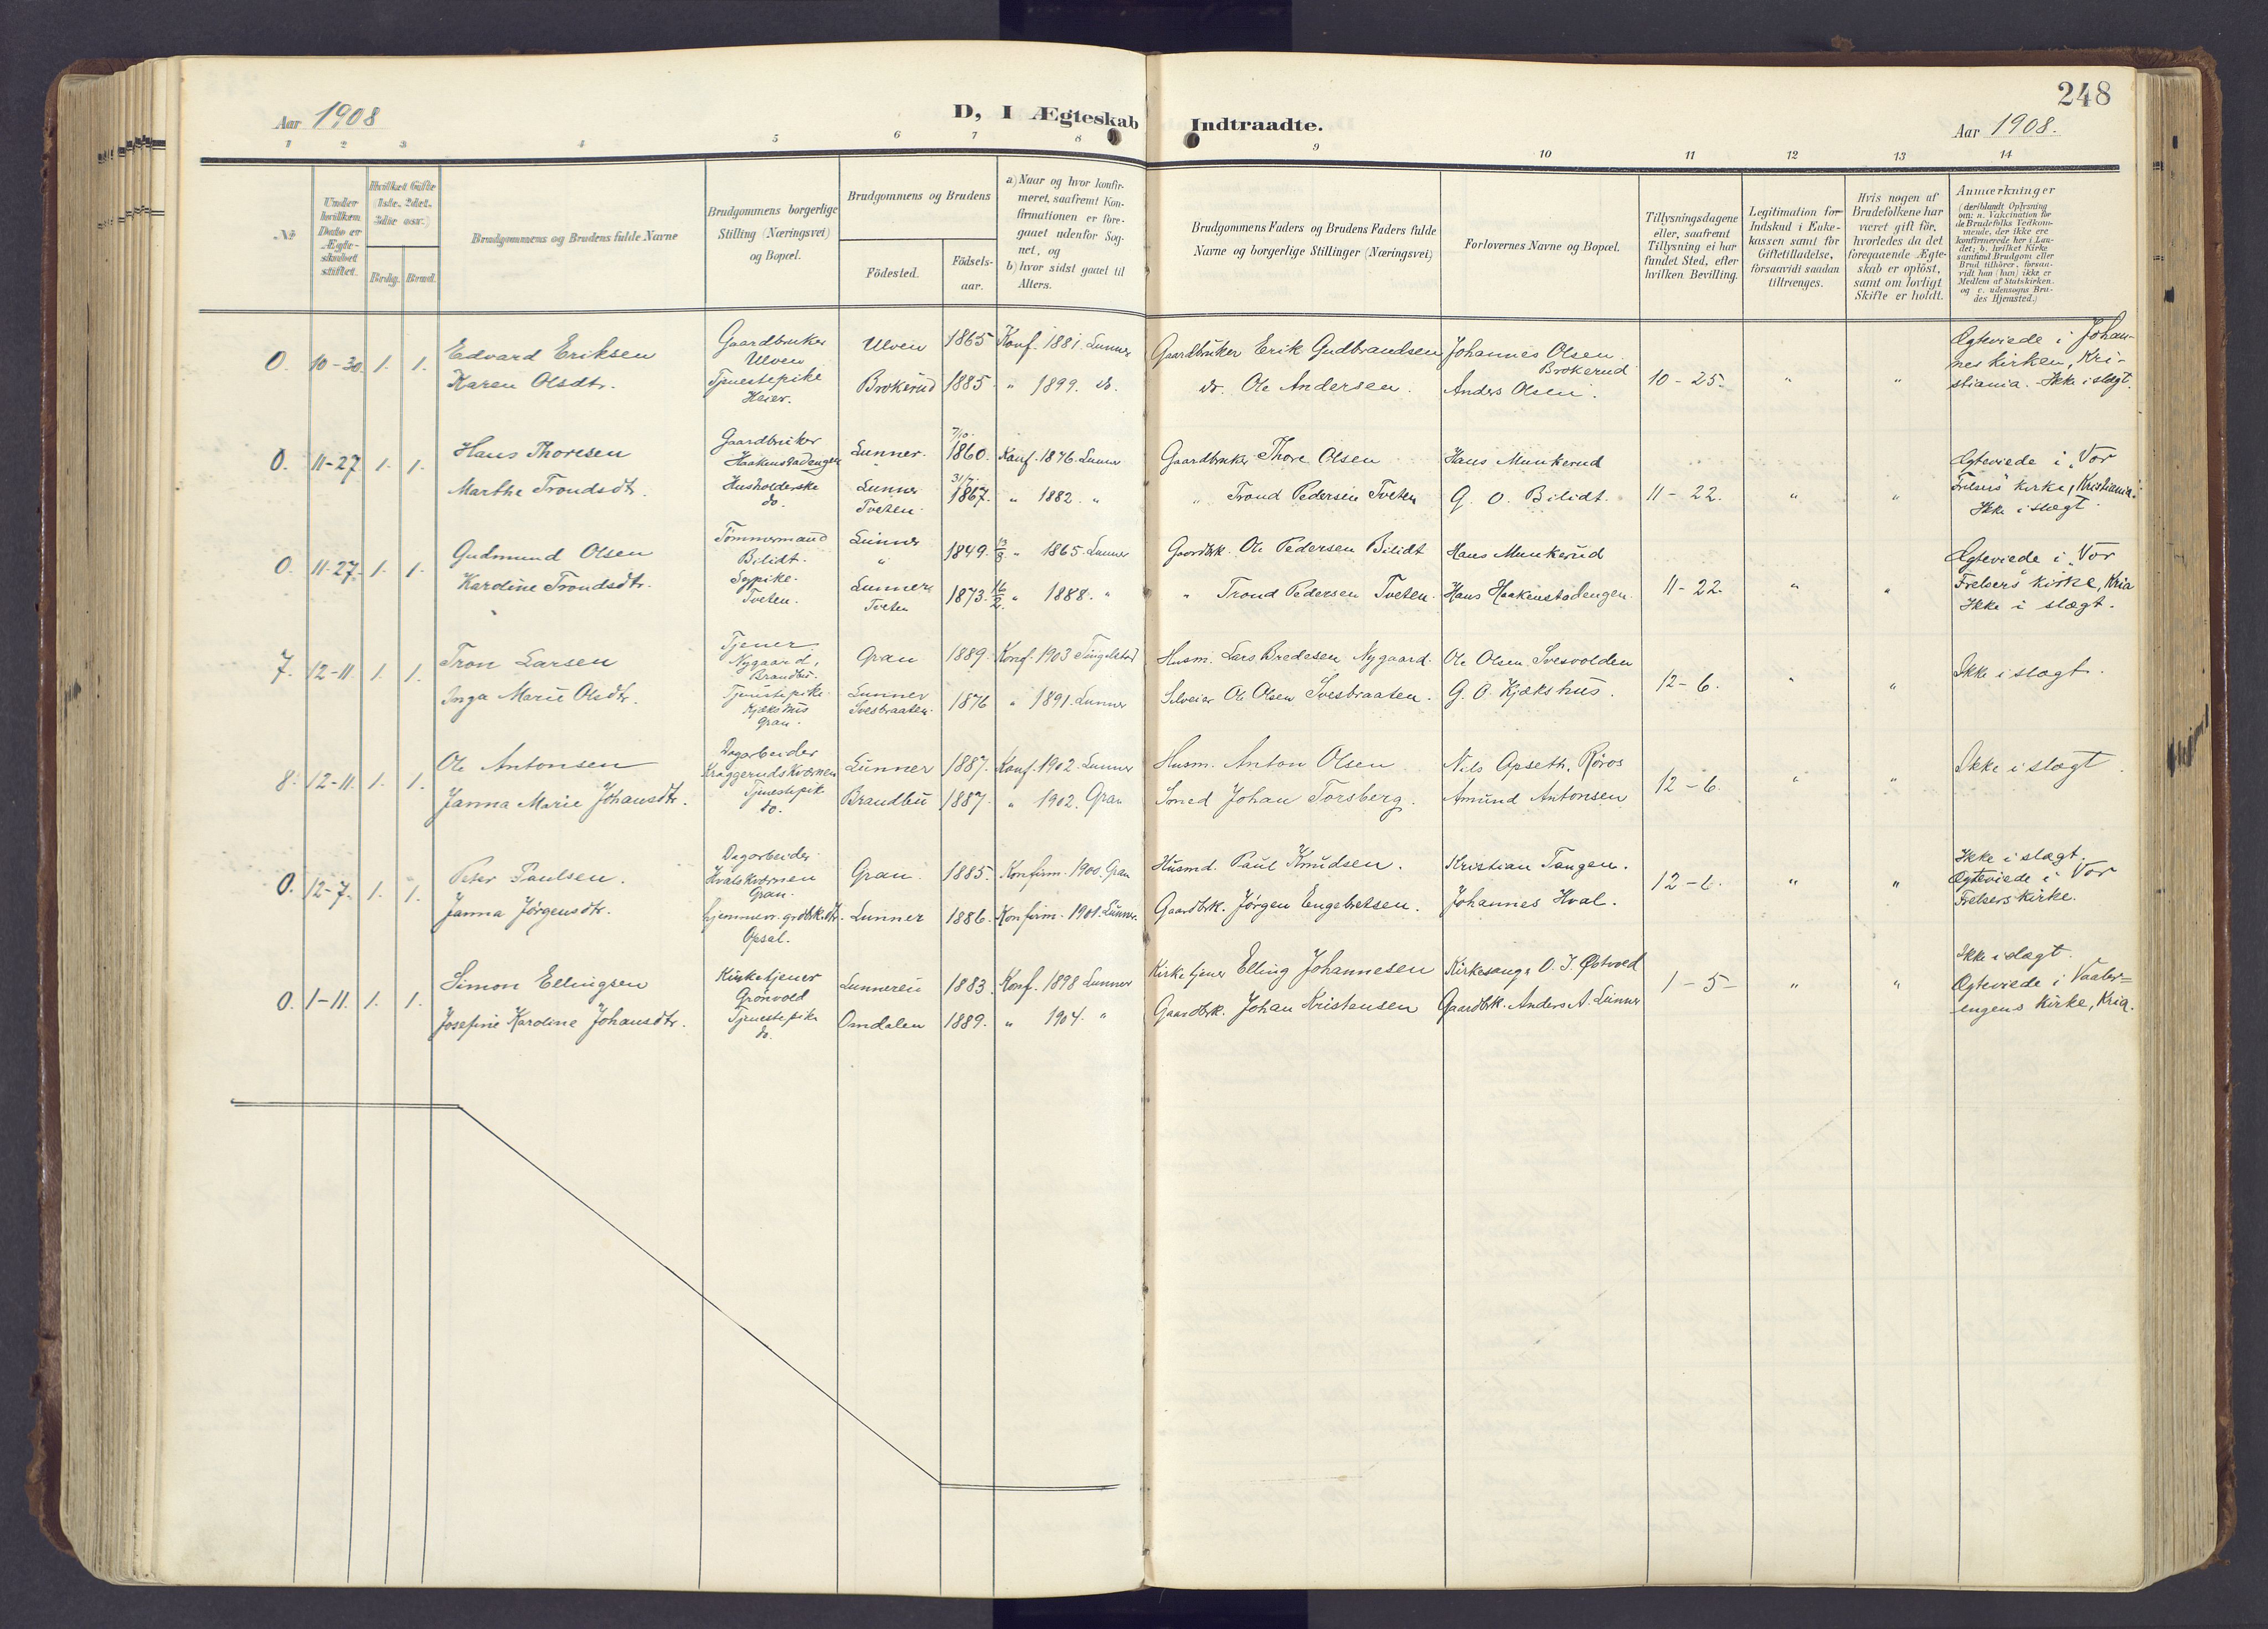 248
Aar 1908
D, I Ægteskab Indtraadte.
Aar 1908.
1 2 3 4 5 6 7 8 9 10 11 12 13 14
№
Under
hvilken
Dato er
Ægte-
skabet
stiftet.
Hvilket Gifte
(1ste, 2det,
3die osv.)
Brdg. Brud.
Brudgommens og Brudens fulde Navne
Brudgommens borgerlige
Stilling (Næringsvei)
og Bopæl.
Brudgommens og Brudens
Födested.
Födsels-
aar.
a) Naar og hvor konfir-
meret, saafremt Kon-
firmationen er fore-
gaaet udenfor Sog-
net, og
b) hvor sidst gaaet til
Alters.
Brudgommens Faders og Brudens Faders fulde
Navne og borgerlige Stillinger (Næringsvei)
Forlovernes Navne og Bopæl.
Tillysningsdagene
eller, saafremt
Tillysning ei har
fundet Sted, efter
hvilken Bevilling.
Legitimation for
Indskud i Enke-
kassen samt for
Giftetilladelse,
forsaavidt saadan
tiltrænges.
Hvis nogen af
Brudefolkene har
været gift för,
hvorledes da det
foregaaende Ægte-
skab er oplöst,
samt om lovligt
Skifte er holdt.
Anmærkninger
(deriblandt Oplysning
om: a. Vakcination for
de Brudefolks Vedkom-
mende, der ikke ere
konfirmerede her i Lan-
det; b. hvilket Kirke
samfund Brudgom eller
Brud tilhörer, forsaa-
vidt han (hun) ikke er
Medlem af Statskirken.
og c. udensogns Bru-
des Hjemsted.)
0. 10-30. 1. 1.
Edvard Eriksen
Karen Olsdtr.
Gaardbruker
Ulven
Tjenestepike
Heier.
Ulven 1865 Konf. 1881. Lunner
Brokerud 1885. " 1899. do.
Gaardbruker Erik Gudbrandsen
do. Ole Andersen.
Johannes Olsen
Brokerud
Anders Olsen.
10-25. " "
Ægteviede i Johan-
nes kirken, Kri-
stiania. - Ikke i slægt.
0. 11-27 1. 1.
Hans Thoresen
Marthe Trondsdtr.
Gaardbruker
Haakenstadengen
Husholderske
do.
Lunner. 7/10 1860. Konf. 1876. Lunner
"
Lunner 31/7 1867. " 1882. "
Tveten.
Gaardbruker Thore Olsen
" Trond Pedersen Tveten
Hans Munkerud
G. O. Bilidt.
11-22. " "
Ægteviede i "Vor
Frelsers" kirke, Kristiania.
Ikke i slægt.
0. 11-27. 1. 1.
Gudmund Olsen
Karoline Trondsdtr.
Tømmermand
Bilidt.
Sypike.
Tveten.
Lunner 1849. 13/8 " 1865. Lunner
"
Lunner 1873. 16/2. " 1888. "
Tveten
Gaardbrk. Ole Pedersen Bilidt
" Trond Pedersen Tveten.
Hans Munkerud
Hans Haakenstadengen.
11-22. " "
Ægteviede i "Vor
Frelsers" kirke, Kria
Ikke i slægt.
7. 12-11. 1. 1.
Tron Larsen
Inga Marie Olsdtr.
Tjener
Nygaard,
Brandbu.
Tjenestepike.
Kjækshus
Gran.
Gran 1889. Konf. 1903 Tingelstad
Lunner 1876 " 1891. Lunner
Svesbraaten.
Husm. Lars Bredesen Nygaard.
Selveier Ole Olsen Svesbraaten.
Ole Olsen Svesvolden
G. O. Kjækshus.
12-6. " "
Ikke i slægt.
8. 12-11. 1. 1.
Ole Antonsen
Janna Marie Johansdtr.
Dagarbeider
Kraggerudskværnen
Tjenestepik
do.
Lunner 1887. Konf. 1902. Lunner
Brandbu 1887. " 1902. Gran
Husm. Anton Olsen
Smed Johan Torsberg.
Nils Opseth, Røros
Amund Antonsen
12-6. " "
Ikke i slægt
0. 12-7. 1. 1.
Peter Paulsen.
Janna Jørgensdtr.
Dagarbeider
Hvalskværnen
Gran.
hjemmev. grdbk.dtr.
Opsal.
Gran. 1885. Konfirm. 1900. Gran
Lunner 1886. Konfirm. 1901. Lunner.
Husmd. Paul Knudsen.
Gaardbrk. Jørgen Engebretsen.
Kristian Tangen.
Johannes Hval.
12-6. " "
Ikke i slægt.
Ægteviede i "Vor
Frelsers kirke.
0. 1-11. 1. 1.
Simon Ellingsen
Josefine Karoline Johansdtr.
Kirketjener
Grønvold
Tjenestepike
do.
Lunnereie 1883. Konf. 1898 Lunner
Omdalen 1889. " 1904. "
Kirketjener Elling Johannesen
Gaardbrk. Johan Kristensen
Kirkesangr O. J. Østvold
Gaardbrk. Anders A. Lunner
1-5- " "
Ikke i slægt.
Ægteviede i Vaaler-
engens kirke, Kria.